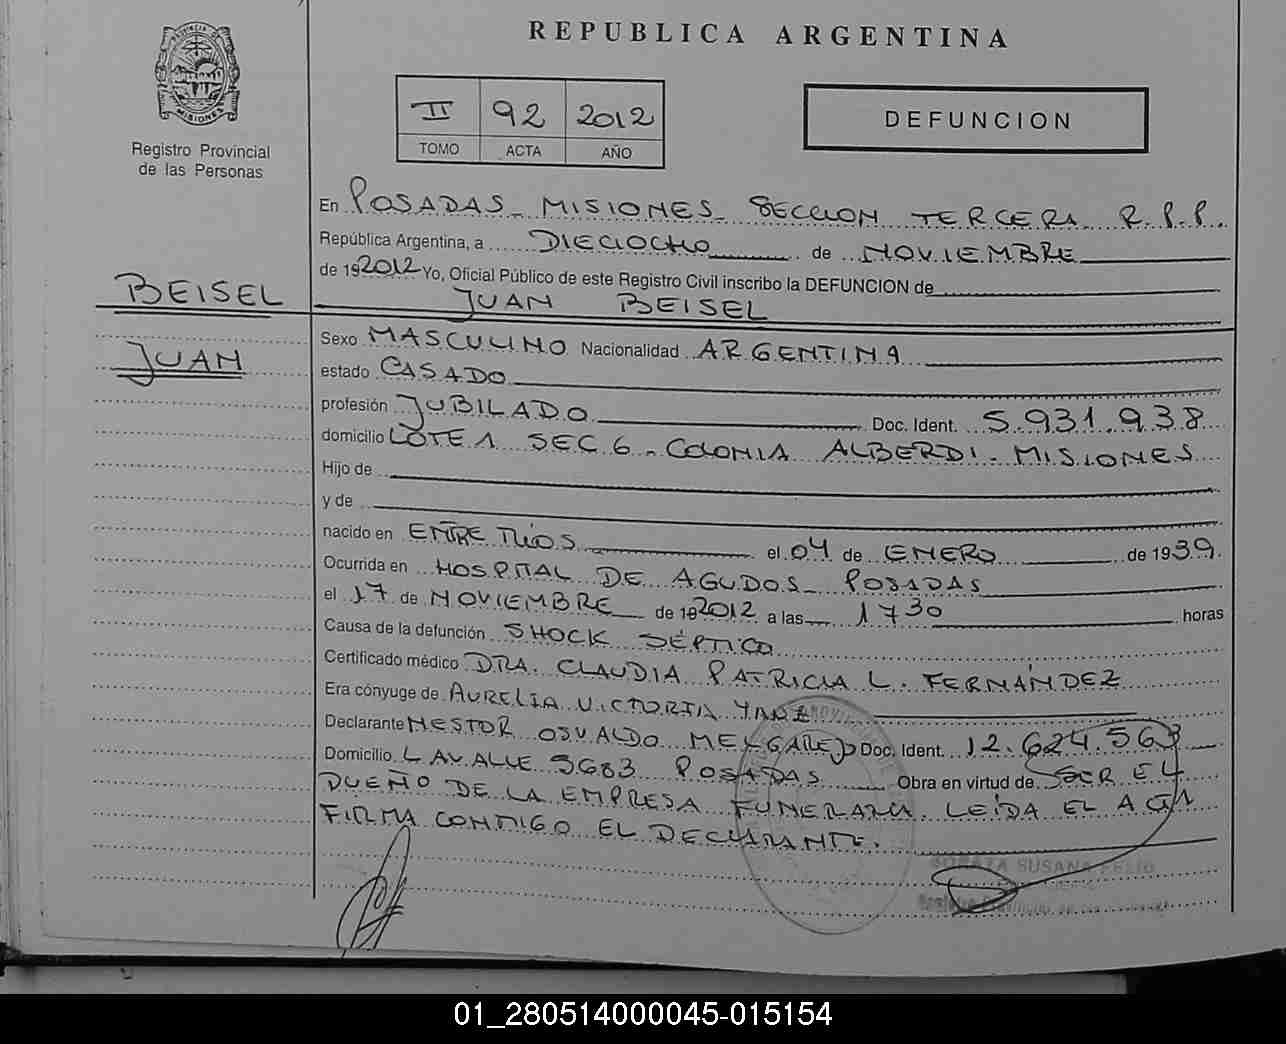 REPUBLICA ARGENTINA
PROVINCIA DE
MISIONES
Registro Provincial
de las Personas
II 92 2012
TOMO ACTA AÑO
DEFUNCION
En POSADAS - MISIONES - SECCION TERCERA R.P.P.
República Argentina, a DIECIOCHO de NOVIEMBRE
de 192012 Yo, Oficial Público de este Registro Civil inscribo la DEFUNCION de
JUAN BEISEL
BEISEL
JUAN
Sexo MASCULINO Nacionalidad ARGENTINA
estado CASADO
profesión JUBILADO Doc. Ident. 5.931.938
domicilio LOTE 1 SEC. 6 - COLONIA ALBERDI - MISIONES
Hijo de
y de
nacido en ENTRE RIOS el 04 de ENERO de 1939
Ocurrida en HOSPITAL DE AGUDOS - POSADAS
el 17 de NOVIEMBRE de 192012 a las 1730 horas
Causa de la defunción SHOCK SÉPTICO
Certificado médico DRA. CLAUDIA PATRICIA L. FERNÁNDEZ
Era cónyuge de AURELIA VICTORIA
Declarante NESTOR OSVALDO MELGAREJO Doc. Ident. 12.624.563
Domicilio LAVALLE 5683 POSADAS Obra en virtud de SER EL
DUEÑO DE LA EMPRESA FUNERARIA. LEÍDA EL ACTA
FIRMA CONMIGO EL DECLARANTE.
SUSANA
01_280514000045-015154